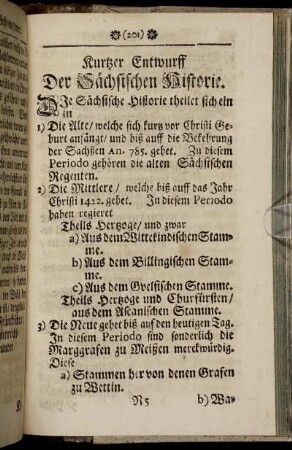 (201)
Kurtzer Entwurff
Der Sächsischen Historie.
DIe Sächsische Historie theilet sich ein
in
1) Die Alte/ welche sich kurtz vor Christi Ge-
burt anfängt/ und biß auff die Bekehrung
der Sachßen An. 785. gehet. Zu diesem
Periodo gehören die alten Sächsischen
Regenten.
2) Die Mittlere/ welche biß auff das Jahr
Christi 1422. gehet. In diesem Periodo
haben regieret
Theils Hertzoge/ und zwar
a) Aus dem Wittekindischen Stam-
me.
b) Aus dem Billingischen Stam-
me.
c) Aus dem Gvelfischen Stamme.
Theils Hertzoge und Churfürsten/
aus dem Ascanischen Stamme.
3) Die Neue gehet biß auf den heutigen Tag.
In diesem Periodo sind sonderlich die
Marggrafen zu Meißen merckwürdig.
Diese
a) Stammen her von denen Grafen
zu Wettin.
N5 b) Wa-